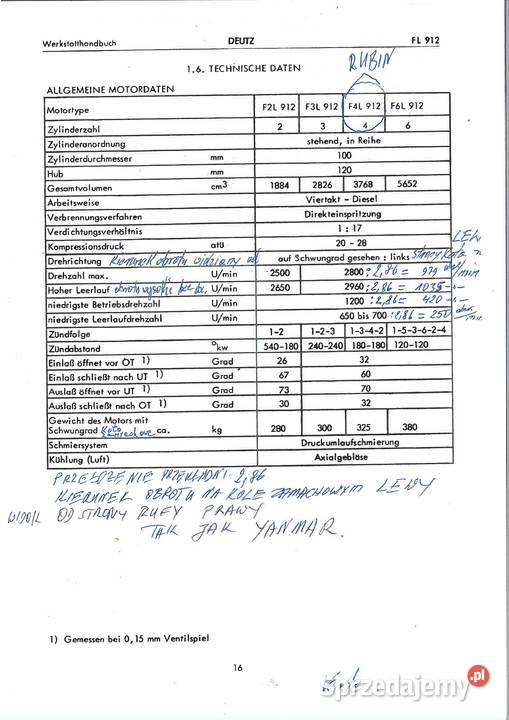 Werkstatthandbuch DEUTZ FL 912
RUBIN
1.6. TECHNISCHE DATEN
ALLGEMEINE MOTORDATEN
Motortype F2L 912 F3L 912 F4L 912 F6L 912
Zylinderzahl 2 3 4 6
Zylinderanordnung stehend, in Reihe
Zylinderdurchmesser mm 100
Hub mm 120
Gesamtvolumen cm3 1884 2826 3768 5652
Arbeitsweise Viertakt - Diesel
Verbrennungsverfahren Direkteinspritzung
Verdichtungsverhältnis 1 : 17
Kompressionsdruck atü 20 - 28
Drehrichtung kierunek obrotu widziany od auf Schwungrad gesehen : links
Drehzahl max. U/min 2500 2800 : 2,86 = 979
Hoher Leerlauf obroty wysokie bez U/min 2650 2960 : 2,86 = 1035
niedrigste Betriebsdrehzahl U/min 1200 : 2,86 = 420
niedrigste Leerlaufdrehzahl U/min 650 bis 700 : 2,86 = 250
Zündfolge 1-2 1-2-3 1-3-4-2 1-5-3-6-2-4
Zündabstand °kw 540-180 240-240 180-180 120-120
Einlaß öffnet vor OT 1) Grad 26 32
Einlaß schließt nach UT 1) Grad 67 60
Auslaß öffnet vor UT 1) Grad 73 70
Auslaß schließt nach OT 1) Grad 30 32
Gewicht des Motors mit
Schwungrad koło zamachowe ca. kg 280 300 325 380
Schmiersystem Druckumlaufschmierung
Kühlung (Luft) Axialgebläse
2,86
KIERUNEK OBROTU NA KOLE ZAMACHOWYM LEWY
OD STRONY RUFY PRAWY
TAK JAK YANMAR.
1) Gemessen bei 0,15 mm Ventilspiel
16
Sprzedajemy.pl